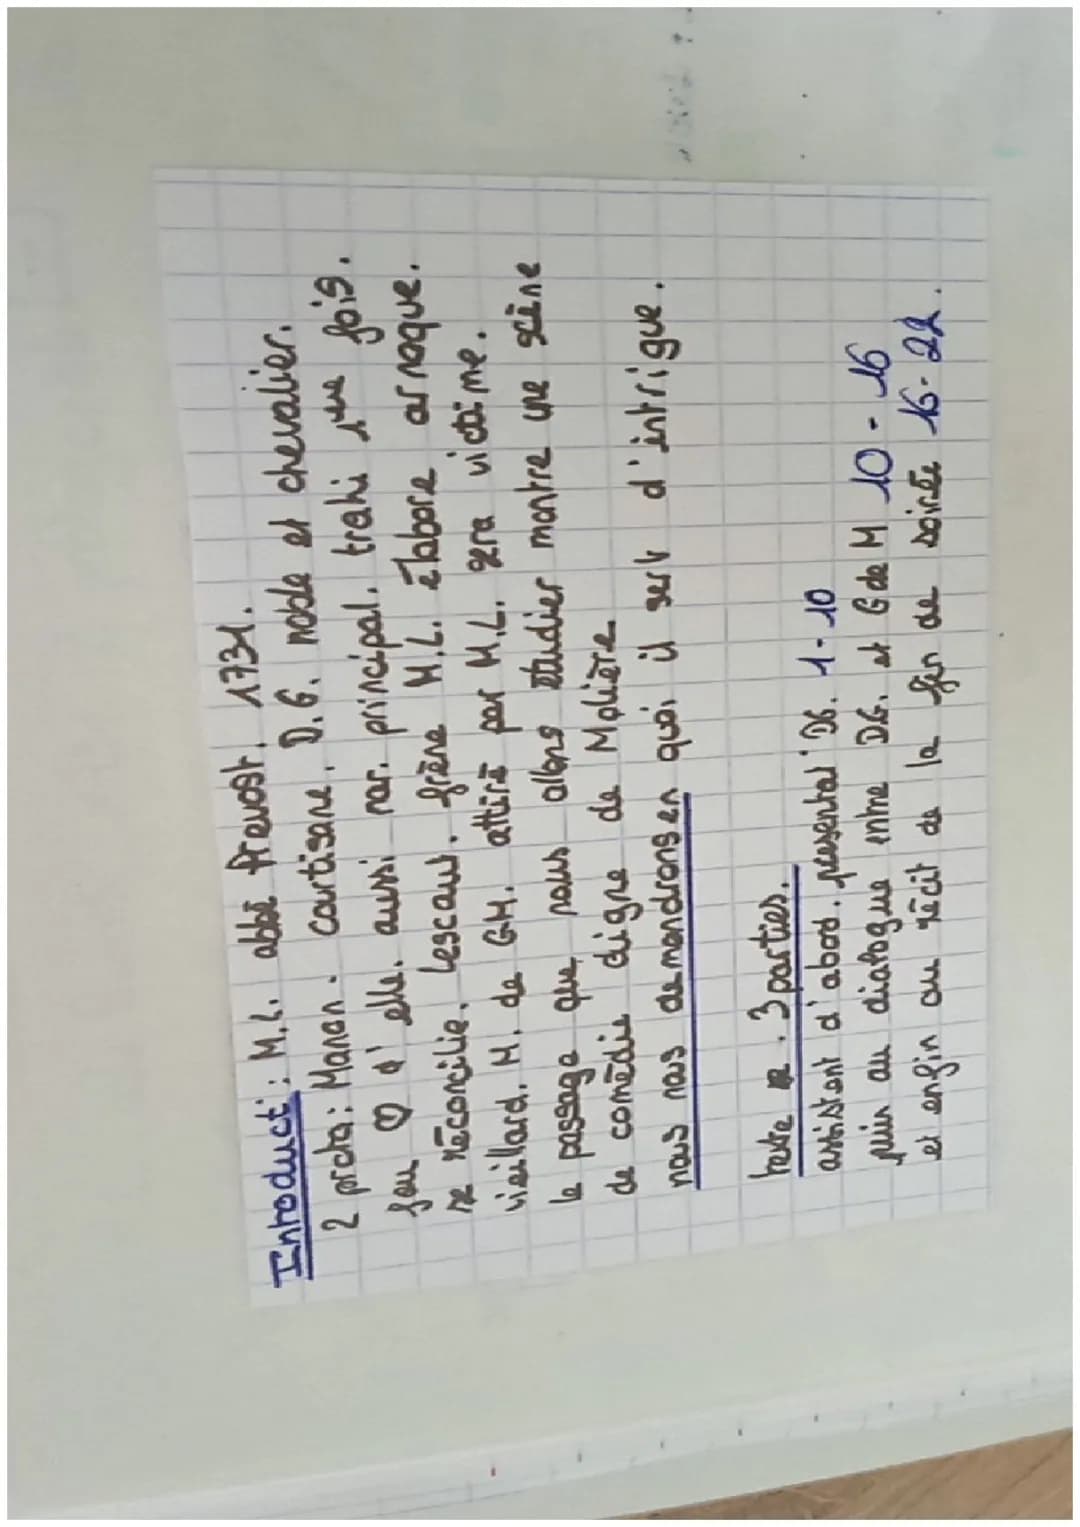 Introduct° : M.L. abbé Prevost. 1731.
2 prota : Manon. courtisane. D.G. noble et chevalier.
fou ♡ d'elle. aussi nar. principal. trahi 1ere fois.
se réconcilie. Lescaut. frère M.L. élabore arnaque.
vieillard. M. de GM. attiré par M.L. sera victime.
le passage que nous allons étudier montre une scène
de comédie digne de Molière
nous nous demandrons en quoi il sert d'intrigue.
texte . 3 parties.
assistent d'abord. presentat° DG. 1-10
puis au dialogue entre DG. et G de M 10-16
et enfin au récit de la fin de soirée 16-22.